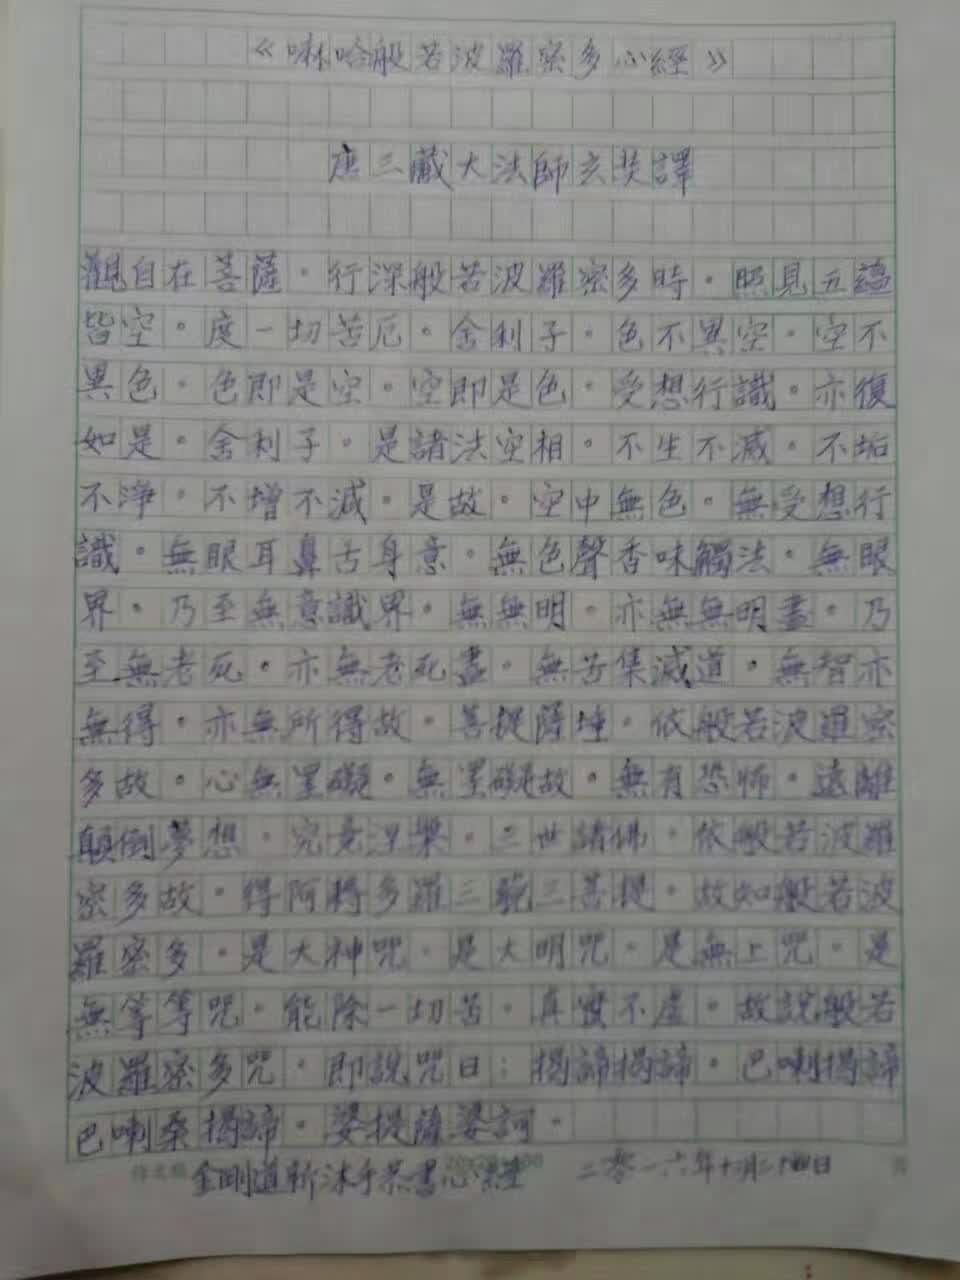 《嘛哈般若波羅密多心經》
唐三藏大法師玄奘譯
觀自在菩薩。行深般若波羅密多時。照見五蘊
皆空。度一切苦厄。舍利子。色不異空。空不
異色。色即是空。空即是色。受想行識。亦復
如是。舍利子。是諸法空相。不生不滅。不垢
不淨。不增不減。是故。空中無色。無受想行
識。無眼耳鼻舌身意。無色聲香味觸法。無眼
界。乃至無意識界。無無明。亦無無明盡。乃
至無老死。亦無老死盡。無苦集滅道。無智亦
無得。亦無所得故。菩提薩埵。依般若波羅密
多故。心無罣礙。無罣礙故。無有恐怖。遠離
顛倒夢想。究竟涅槃。三世諸佛。依般若波羅
密多故。得阿耨多羅三藐三菩提。故知般若波
羅密多。是大神咒。是大明咒。是無上咒。是
無等等咒。能除一切苦。真實不虛。故說般若
波羅密多咒。即說咒曰：揭諦揭諦。巴喇揭諦
巴喇桑揭諦。婆提薩婆訶。
金剛道新沐手恭書心經 二零一六年十月二十四日